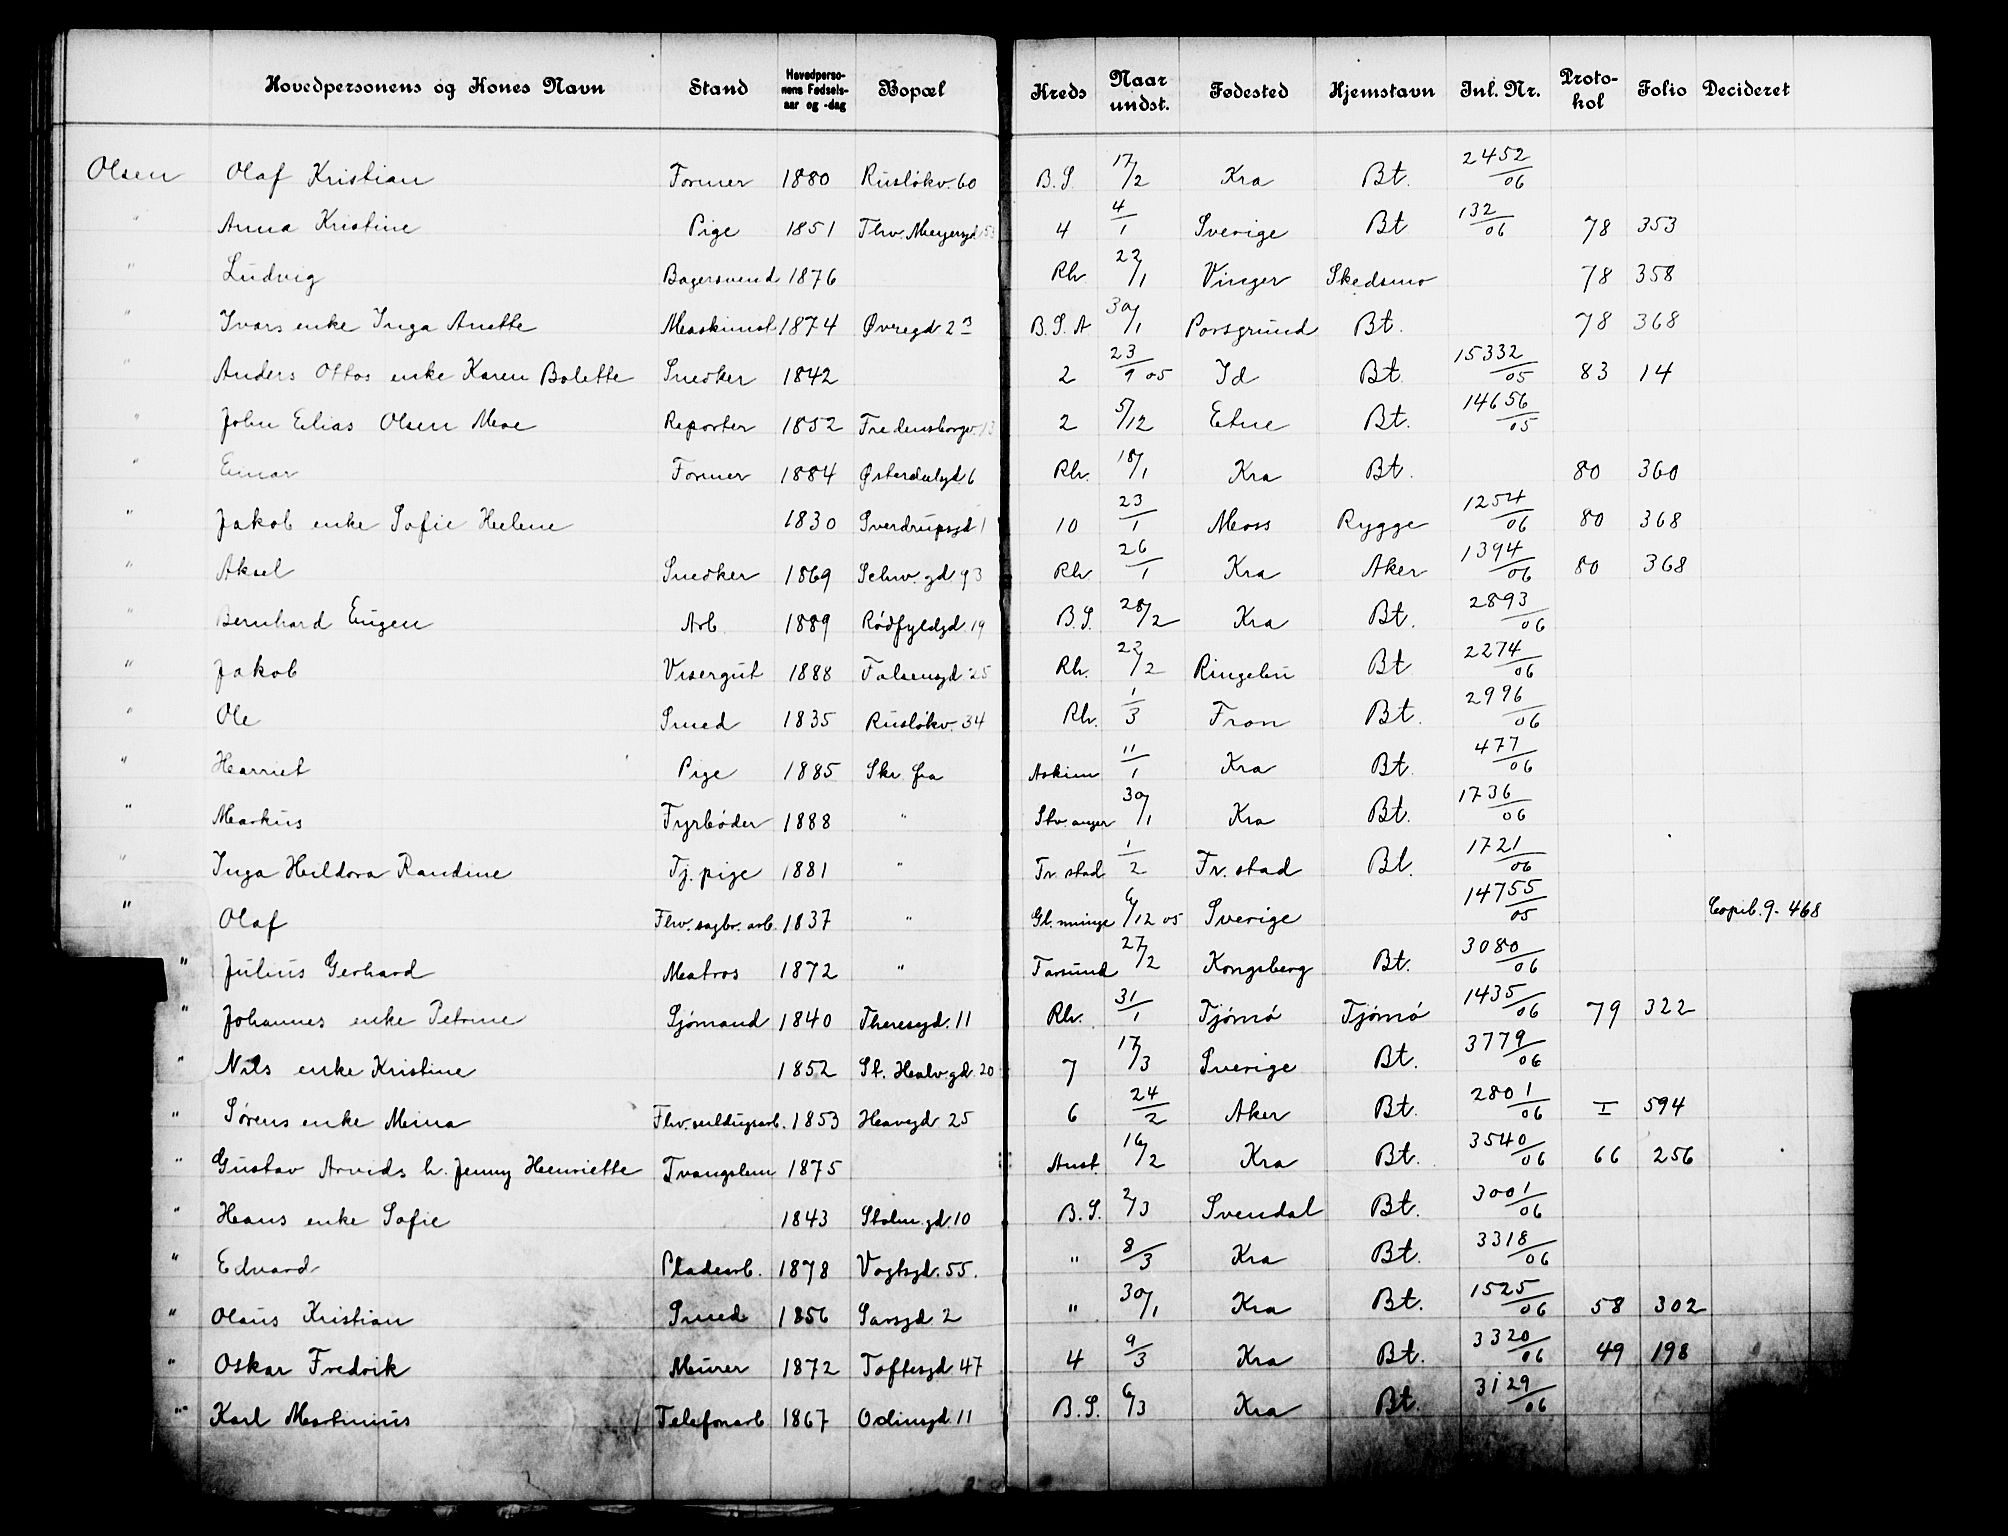 Hovedpersonens og Kones Navn Stand Hovedpersonens Fødselsaar og -dag Bopæl Kreds Naar undst. Fødested Hjemstavn Inl. Nr. Protokol Folio Decideret
Olsen Olaf Kristian Former 1880 Rusløkv. 60 B.S. 17/2 Kra Bt. 2452/06
" Anna Kristine Pige 1851 Thv. Meyersgd 4 4/1 Sverige Bt 132/06 78 353
" Ludvig Bagersvend 1876 Rh. 22/1 Vinger Skedsmo 78 358
" Ivars enke Inga Anette Maskinist 1874 Øvregd 2 B.S.A 30/1 Porsgrund Bt. 78 368
" Anders Ottos enke Karen Bolette Snedker 1842 2 23/9 05 Id Bt. 15332/05 83 14
" John Elias Olsen Moe Reporter 1852 Fredensborgv. 13 2 5/12 Etne Bt. 14656/05
" Einar Former 1884 Østerdalsgd. 6 Rh. 18/1 Kra Bt. 80 360
" Jakob enke Sofie Helene 1830 Sverdrupsgd 1 10 23/1 Moss Rygge 1254/06 80 368
" Aksel Snedker 1869 Schw. gd 93 Rh. 26/1 Kra Aker 1394/06 80 368
" Bernhard Eugen Arb. 1889 Rødfyldgd. 19 B.S. 28/2 Kra Bt. 2893/06
" Jakob Visergut 1888 Falsensgd 25 Rh. 22/2 Ringebu Bt 2274/06
" Ole Smed 1835 Rusløkv. 34 Rh. 1/3 Fron Bt. 2996/06
" Harriet Pige 1885 Skr. fra Askim 11/1 Kra Bt. 477/06
" Markus Fyrbøder 1888 " Stv.anger 30/1 Kra Bt. 1736/06
" Inga Hildora Randine Tj.pige 1881 " Fr.stad 1/2 Fr.stad Bt. 1721/06
" Olaf Fhv. sagbr. arb. 1837 " Gl. minge 6/12 05 Sverige 14755/05 Copib. 9 - 468
" Julius Gerhard Matros 1872 " Farsund 27/2 Kongsberg Bt. 3080/06
" Johannes enke Petrine Sjømand 1840 Theresgd. 11 Rh. 31/1 Tjømø Tjømø 1435/06 79 322
" Nils enke Kristine 1852 St. Halv. gd. 20 7 17/3 Sverige Bt. 3779/06
" Sørens enke Mina 1853 Havegd. 25 6 24/2 Aker Bt. 2801/06 I 594
" Gustav Arvids h. Jenny Henriette Tvangslem 1875 Anst. 16/2 Kra Bt. 3540/06 66 256
" Hans enke Sofie 1843 Stolm. gd. 10 B.S. 2/3 Svendal Bt. 3001/06
" Edvard Pladearb. 1878 Vogtsgd. 55. " 8/3 Kra Bt. 3318/06
" Olaus Kristian Smed 1856 Sarsgd. 2 " 30/1 Kra Bt. 1525/06 58 302
" Oskar Fredrik Murer 1872 Toftesgd 47 4 9/3 Kra Bt. 3320/06 49 198
" Karl Martinius Telefonarb 1867 Odinsgd. 11 B.S. 6/3 Kra Bt. 3129/06